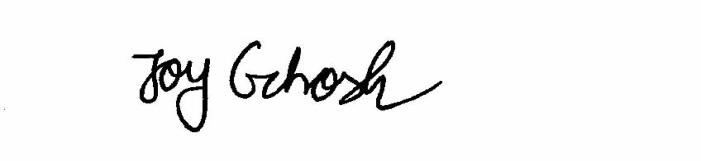 Joy Ghosh